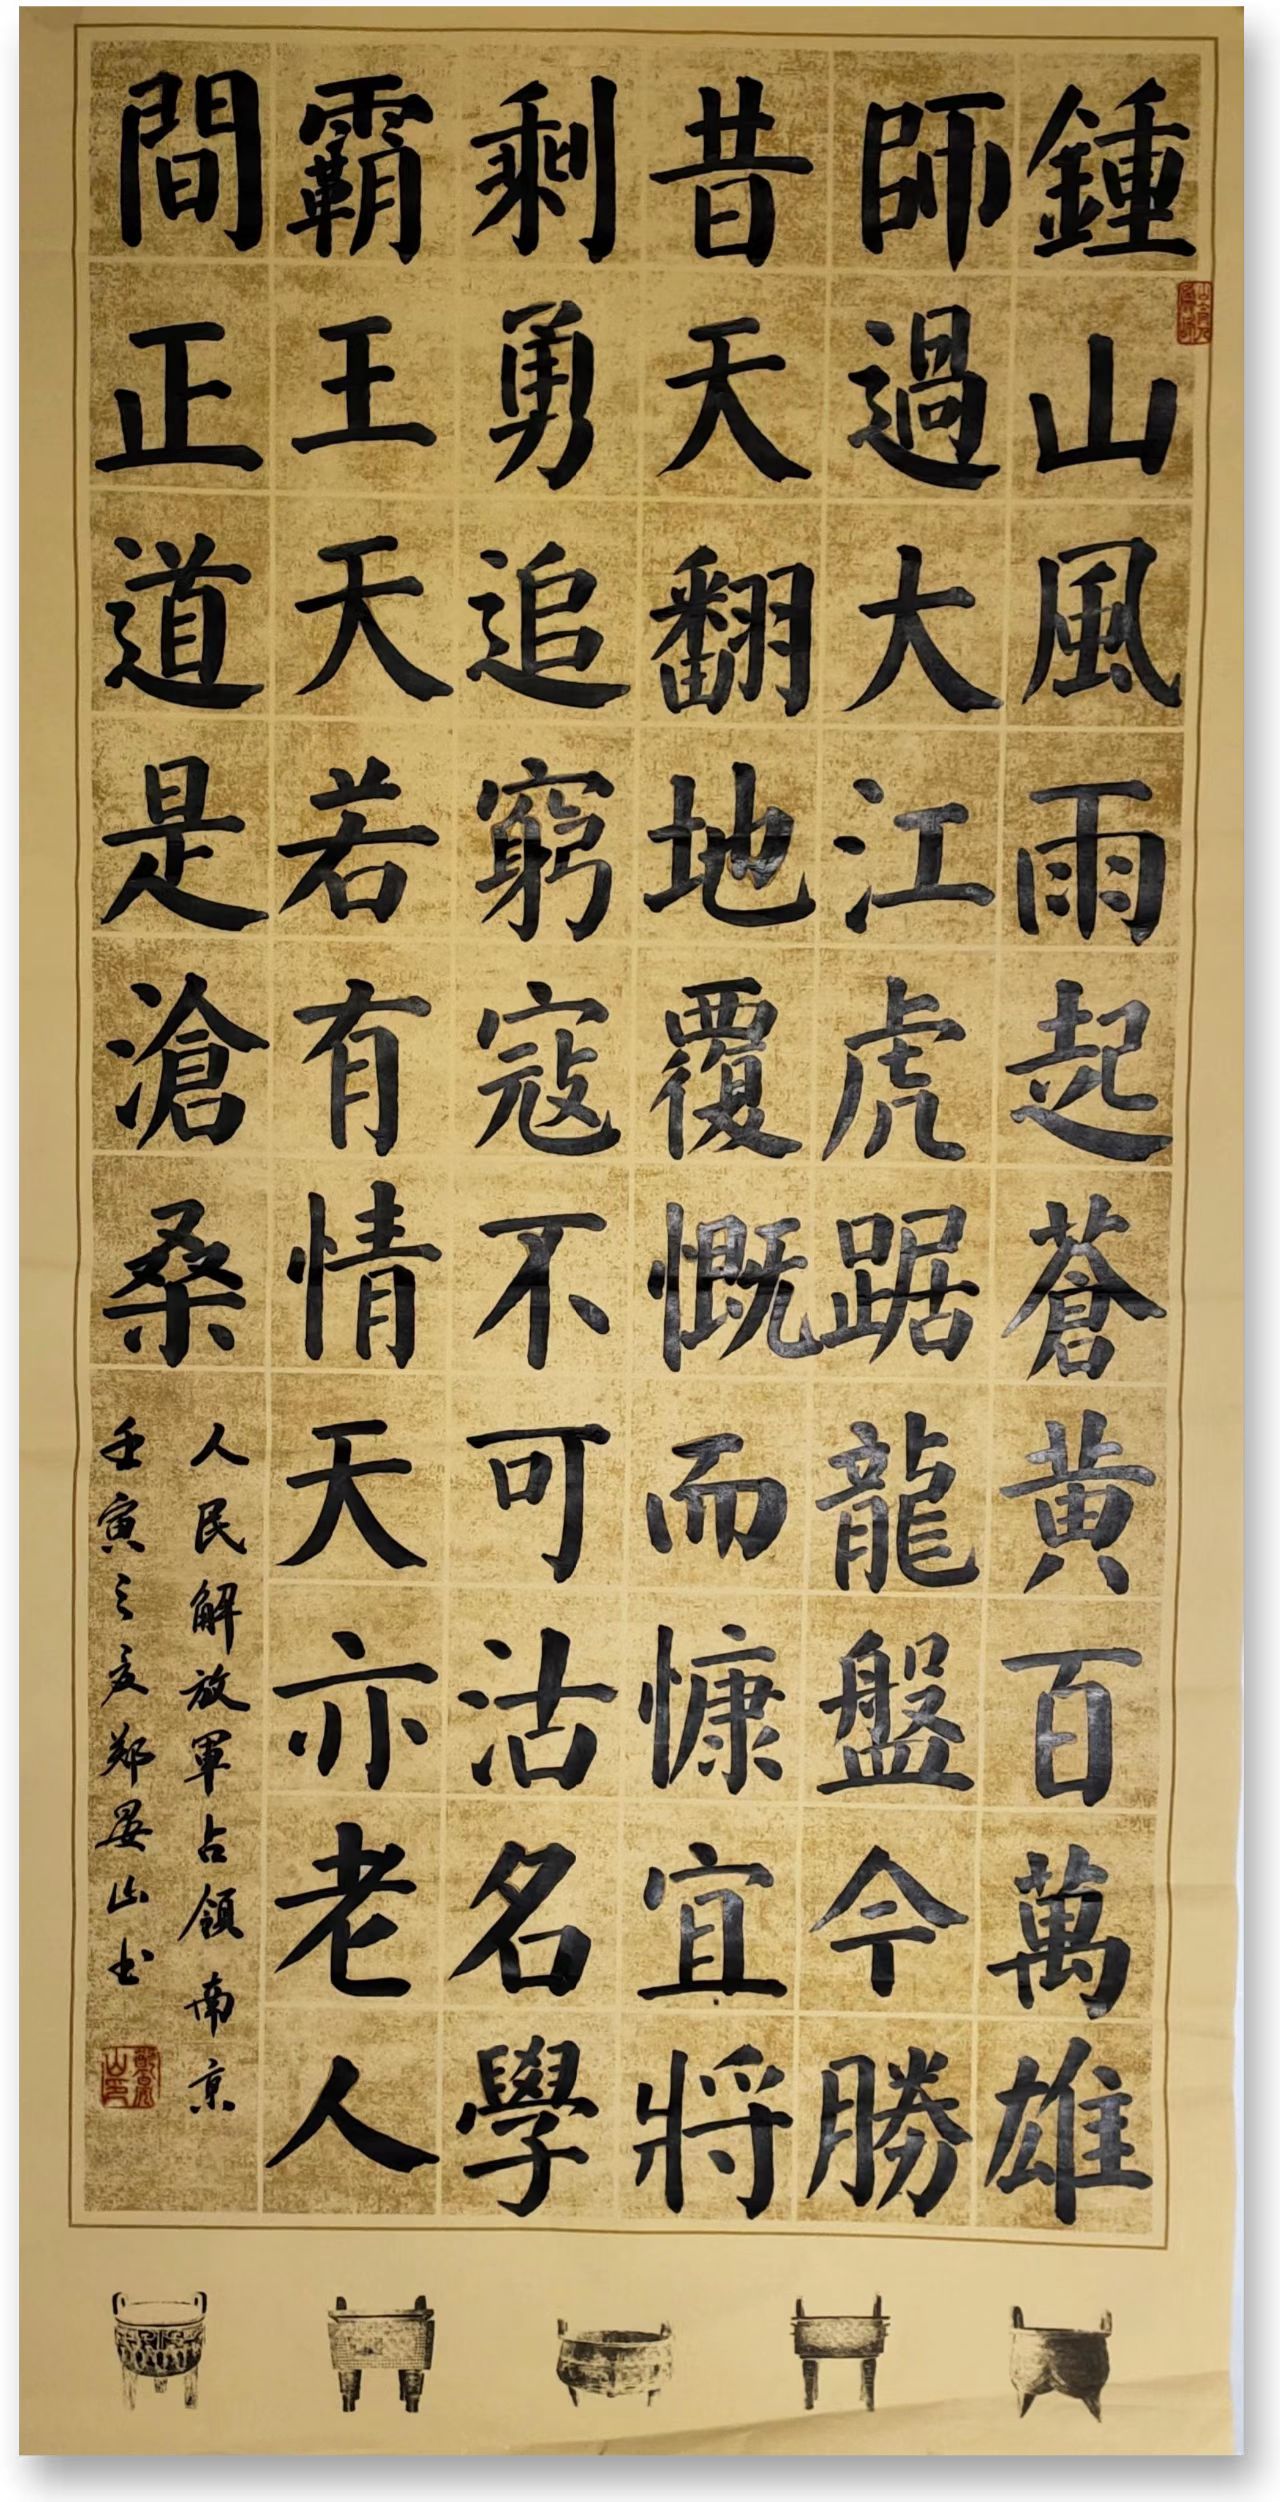 鍾山風雨起蒼黄百萬雄
師過大江虎踞龍盤今勝
昔天翻地覆慨而慷宜將
剩勇追窮寇不可沽名學
霸王天若有情天亦老人
間正道是滄桑
人民解放軍占領南京
壬寅之夏郑晏山书